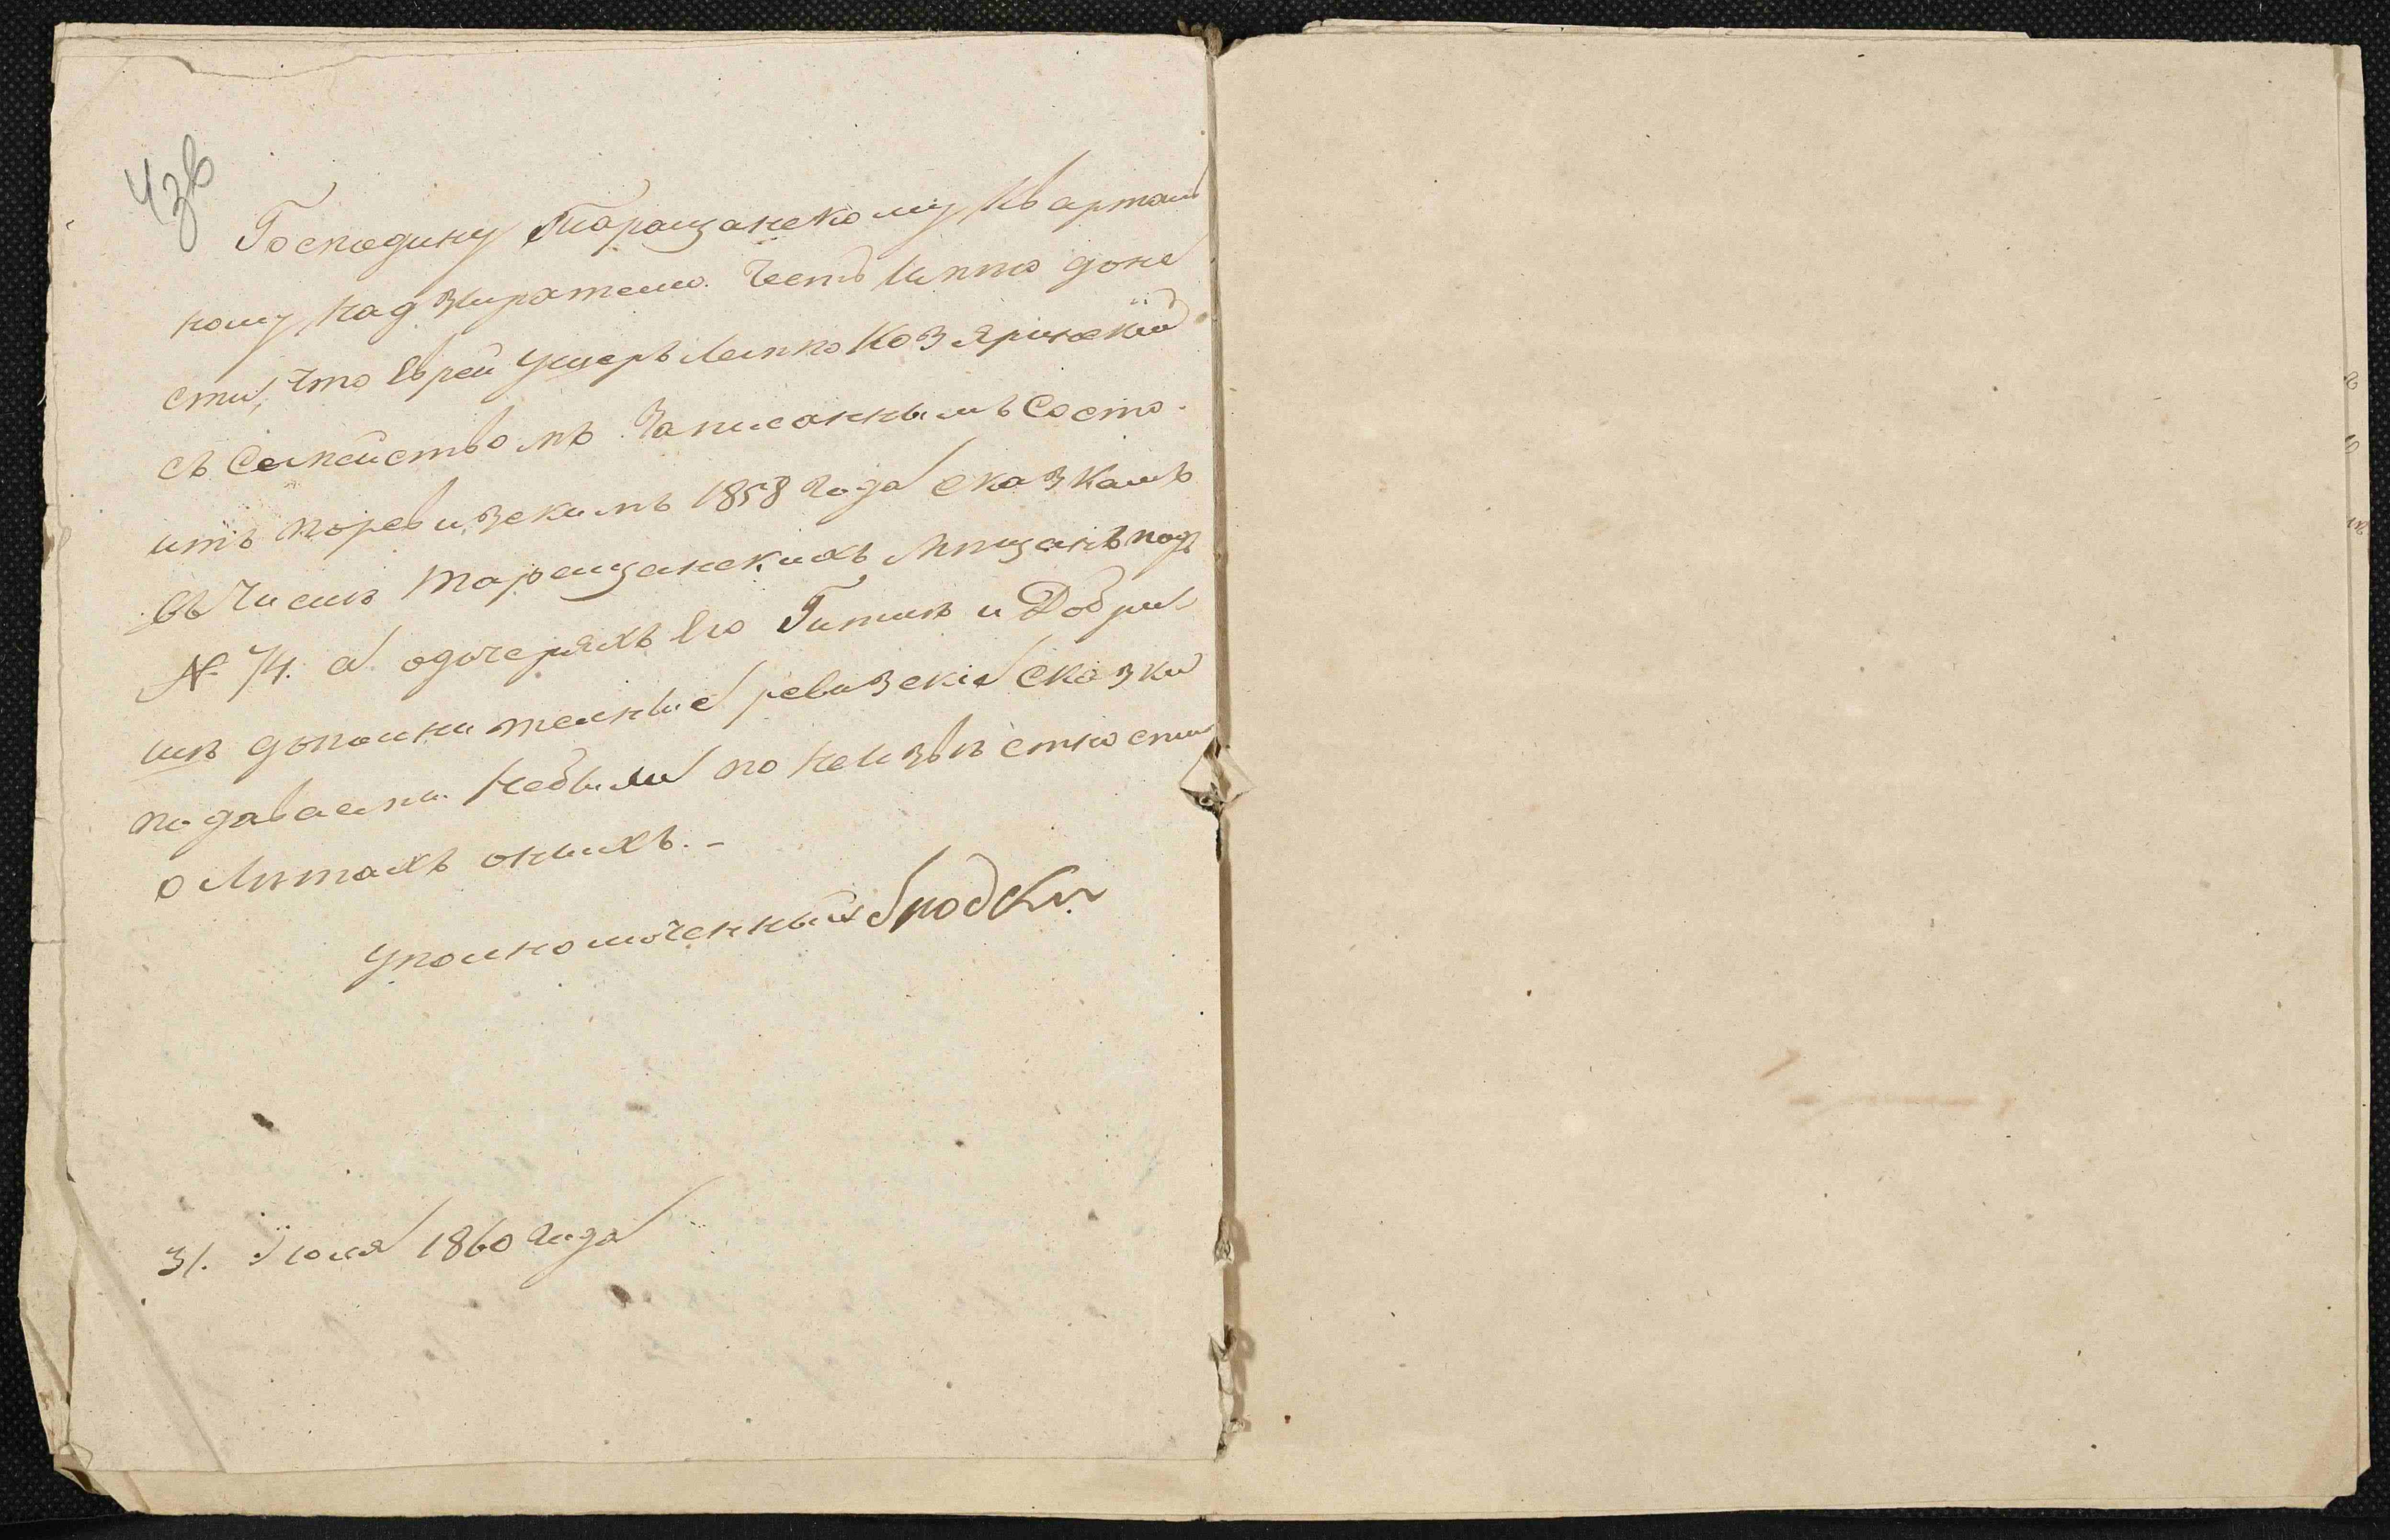 43в
Господину Таращанскому Кварталь
ному Надзирателю. Честь Имею доне
сти, что Еврей Ушеръ Лейпко Козяринский
съ Семействомъ Записаннымъ Состо
итъ поревизскимъ 1858 года сказкамъ
въ Числѣ Таращанскихъ Мѣщанъ подъ
№ 74. а одочеряхъ Его Гитлѣ и Добри
шѣ дополнителные ревизскіе сказки
подаваемы Небыли по Неизвѣстности
о Лѣтахъ оныхъ. –
Уполномоченный Бродски
31. Іюля 1860 года